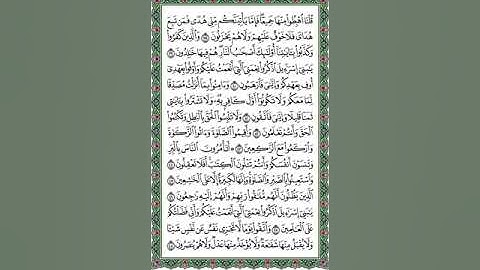 قُلْنَا ٱهْبِطُوا۟ مِنْهَا جَمِيعًا فَإِمَّا يَأْتِيَنَّكُم مِّنِّى هُدًى فَمَن تَبِعَ
هُدَاىَ فَلَا خَوْفٌ عَلَيْهِمْ وَلَا هُمْ يَحْزَنُونَ ٣٨ وَٱلَّذِينَ كَفَرُوا۟
وَكَذَّبُوا۟ بِـَٔايَـٰتِنَآ أُو۟لَـٰٓئِكَ أَصْحَـٰبُ ٱلنَّارِ هُمْ فِيهَا خَـٰلِدُونَ ٣٩
يَـٰبَنِىٓ إِسْرَٰٓءِيلَ ٱذْكُرُوا۟ نِعْمَتِىَ ٱلَّتِىٓ أَنْعَمْتُ عَلَيْكُمْ وَأَوْفُوا۟ بِعَهْدِىٓ
أُوفِ بِعَهْدِكُمْ وَإِيَّـٰىَ فَٱرْهَبُونِ ٤٠ وَءَامِنُوا۟ بِمَآ أَنزَلْتُ مُصَدِّقًا
لِّمَا مَعَكُمْ وَلَا تَكُونُوٓا۟ أَوَّلَ كَافِرٍۭ بِهِۦ وَلَا تَشْتَرُوا۟ بِـَٔايَـٰتِى
ثَمَنًا قَلِيلًا وَإِيَّـٰىَ فَٱتَّقُونِ ٤١ وَلَا تَلْبِسُوا۟ ٱلْحَقَّ بِٱلْبَـٰطِلِ وَتَكْتُمُوا۟
ٱلْحَقَّ وَأَنتُمْ تَعْلَمُونَ ٤٢ وَأَقِيمُوا۟ ٱلصَّلَوٰةَ وَءَاتُوا۟ ٱلزَّكَوٰةَ
وَٱرْكَعُوا۟ مَعَ ٱلرَّٰكِعِينَ ٤٣ ۞ أَتَأْمُرُونَ ٱلنَّاسَ بِٱلْبِرِّ
وَتَنسَوْنَ أَنفُسَكُمْ وَأَنتُمْ تَتْلُونَ ٱلْكِتَـٰبَ أَفَلَا تَعْقِلُونَ ٤٤
وَٱسْتَعِينُوا۟ بِٱلصَّبْرِ وَٱلصَّلَوٰةِ وَإِنَّهَا لَكَبِيرَةٌ إِلَّا عَلَى ٱلْخَـٰشِعِينَ ٤٥
ٱلَّذِينَ يَظُنُّونَ أَنَّهُم مُّلَـٰقُوا۟ رَبِّهِمْ وَأَنَّهُمْ إِلَيْهِ رَٰجِعُونَ ٤٦
يَـٰبَنِىٓ إِسْرَٰٓءِيلَ ٱذْكُرُوا۟ نِعْمَتِىَ ٱلَّتِىٓ أَنْعَمْتُ عَلَيْكُمْ وَأَنِّى فَضَّلْتُكُمْ
عَلَى ٱلْعَـٰلَمِينَ ٤٧ وَٱتَّقُوا۟ يَوْمًا لَّا تَجْزِى نَفْسٌ عَن نَّفْسٍ شَيْـًٔا
وَلَا يُقْبَلُ مِنْهَا شَفَـٰعَةٌ وَلَا يُؤْخَذُ مِنْهَا عَدْلٌ وَلَا هُمْ يُنصَرُونَ ٤٨